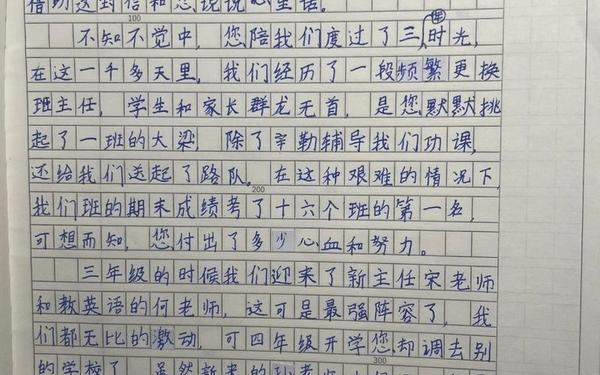 借助这封信和您说说心里话。
100
不知不觉中，您陪我们度过了三年时光，
在这一千多天里，我们经历了一段频繁更换
班主任，学生和家长群龙无首，是您默默挑
起了一班的大梁，除了辛勤辅导我们功课，
还给我们送起了路队。在这种艰难的情况下，
200
我们班的期末成绩考了十六个班的第一名，
可想而知，您付出了多少心血和努力。
三年级的时候我们迎来了新主任宋老师
和教英语的何老师，这可是最强阵容了，我
们都无比的激动，可四年级开学您却调去别
300
的学校了，虽然新来的孙老师